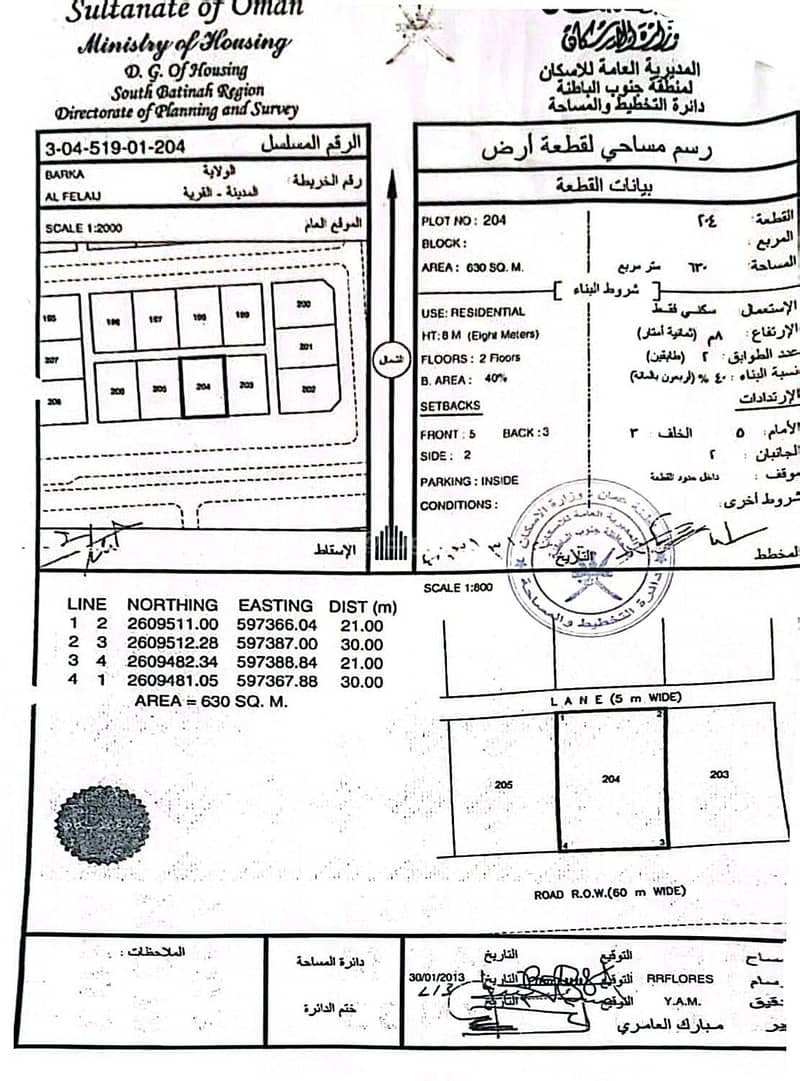 Sultanate of Oman
Ministry of Housing
D. G. Of Housing
South Batinah Region
Directorate of Planning and Survey
وزارة الإسكان
المديرية العامة للاسكان
لمنطقة جنوب الباطنة
دائرة التخطيط والمساحة
3-04-519-01-204 الرقم المسلسل
BARKA الولاية
رقم الخريطة :
AL FELAIJ المدينة - القرية
SCALE 1:2000 الموقع العام
195 196 197 198 199 200
207 201
208 206 205 204 203 202
الإسقاط
الشمال
رسم مساحي لقطعة أرض
بيانات القطعة
PLOT NO : 204 القطعة : ٢٠٤
BLOCK : المربع :
AREA : 630 SQ. M. المساحة : ٦٣٠ متر مربع
[ شروط البناء ]
USE: RESIDENTIAL الإستعمال : سكني فقط
HT: 8 M (Eight Meters) الإرتفاع : ٨م (ثمانية أمتار)
FLOORS : 2 Floors عدد الطوابق : ٢ (طابقين)
B. AREA : 40% نسبة البناء : ٤٠ % (اربعون بالمائة)
SETBACKS الإرتدادات
FRONT : 5 BACK : 3 الأمام : ٥ الخلف : ٣
SIDE : 2 الجانبان : ٢
PARKING : INSIDE موقف : داخل حدود القطعة
CONDITIONS : شروط أخرى :
المخطط
التاريخ
SCALE 1:800
LINE NORTHING EASTING DIST (m)
1 2 2609511.00 597366.04 21.00
2 3 2609512.28 597387.00 30.00
3 4 2609482.34 597388.84 21.00
4 1 2609481.05 597367.88 30.00
AREA = 630 SQ. M.
LANE (5 m WIDE)
1 2
205 204 203
4 3
ROAD R.O.W.(60 m WIDE)
الملاحظات :
دائرة المساحة
ختم الدائرة
مساح التوقيع التاريخ
رسام RRFLORES التوقيع التاريخ 30/01/2013
تدقيق Y.A.M. التوقيع التاريخ
مبارك العامري